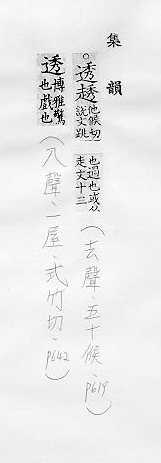 集韻
。透趒他候切說文跳也過也或从走文十三(去聲.五十候.p619)
透博雅驚也戲也(入聲.一屋.式竹切.p642)